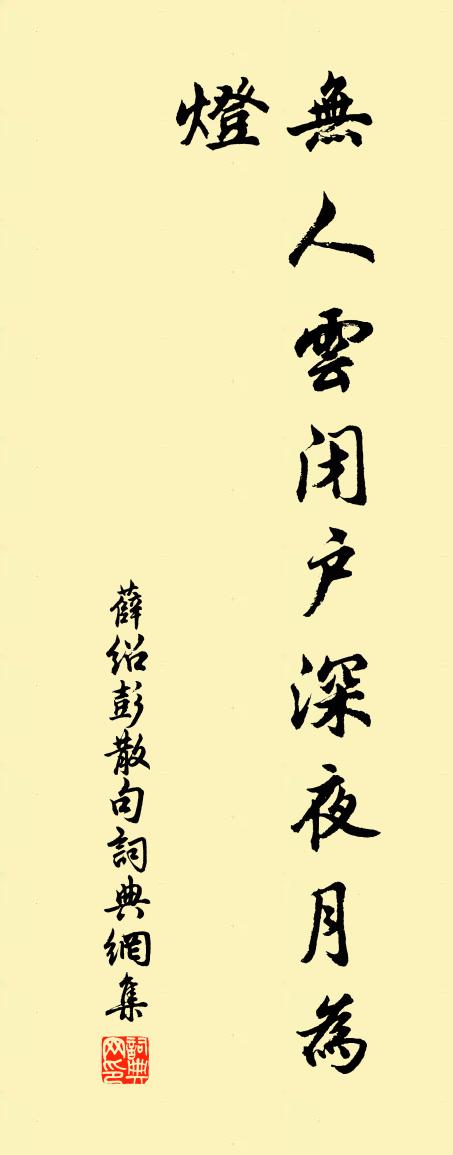 無人雲闭户深夜月為
燈
薛绍彭散句詞典網集
詞典
网印